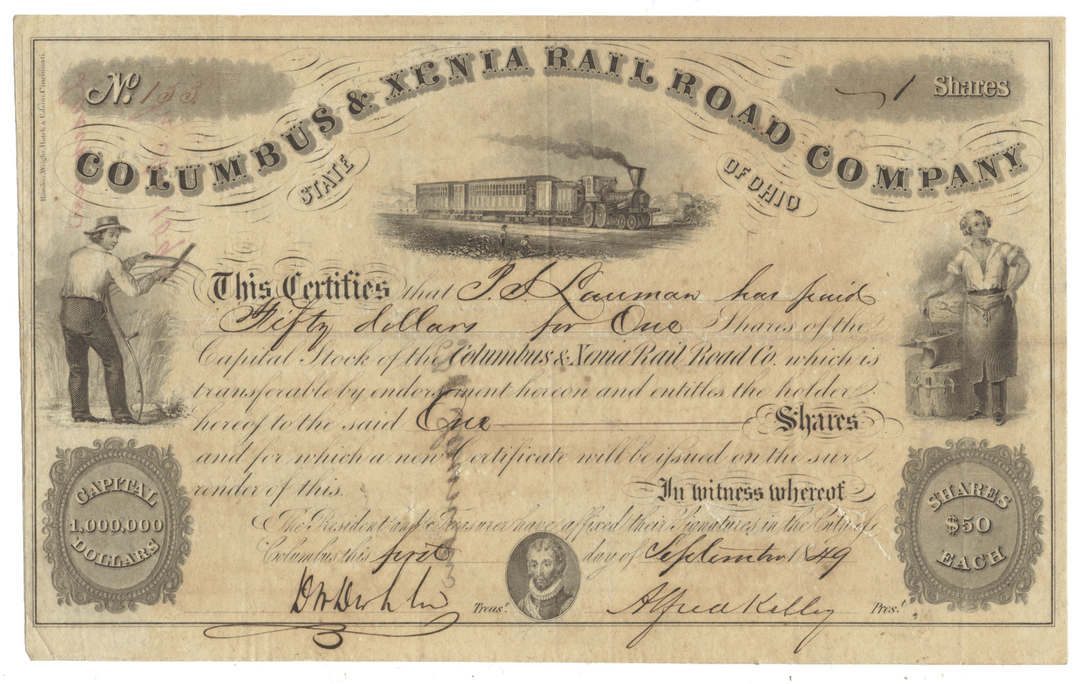 Nº. 133
1 Shares
COLUMBUS & XENIA RAIL ROAD COMPANY
STATE OF OHIO
This Certifies that Lauman has paid
Fifty dollars for One Shares of the
Capital Stock of the Columbus & Xenia Rail Road Co. which is
transferable by endorsement hereon and entitles the holder
hereof to the said One Shares
and for which a new Certificate will be issued on the sur
render of this.
In witness whereof
The President and Treasurer have affixed their Signatures in the City of
Columbus this first day of September 1849
Treasr.
Alfred Kelley Prest.
CAPITAL
1,000,000
DOLLARS
SHARES
$50
EACH
Rawdon, Wright, Hatch & Edson, Cincinnati.